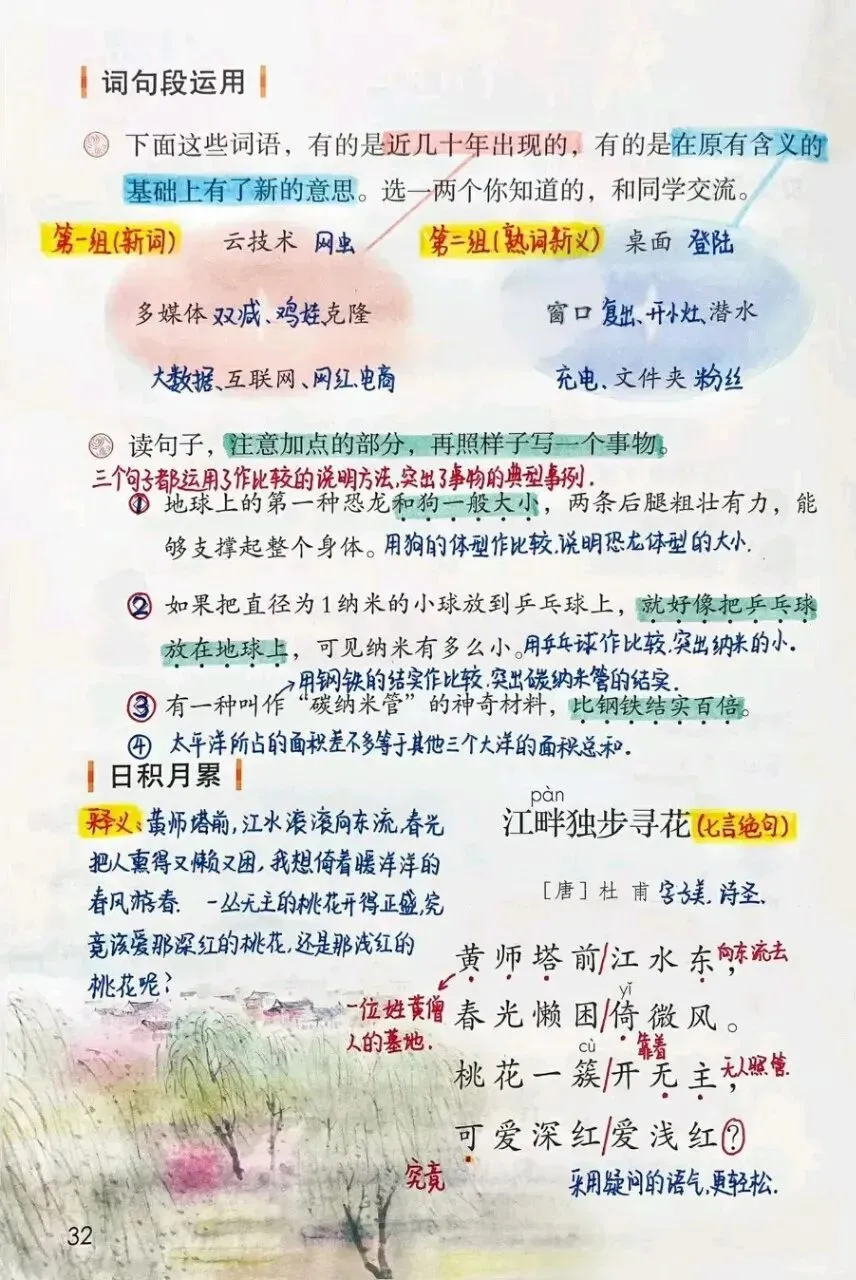 词句段运用
下面这些词语，有的是近几十年出现的，有的是在原有含义的
基础上有了新的意思。选一两个你知道的，和同学交流。
第一组(新词) 云技术 网虫
第二组(熟词新义) 桌面 登陆
多媒体 双减、鸡娃、克隆
窗口 复出、开小灶、潜水
大数据、互联网、网红、电商
充电、文件夹 粉丝
读句子，注意加点的部分，再照样子写一个事物。
三个句子都运用了作比较的说明方法,突出了事物的典型事例.
① 地球上的第一种恐龙和狗一般大小，两条后腿粗壮有力，能
够支撑起整个身体。用狗的体型作比较,说明恐龙体型的大小.
② 如果把直径为1纳米的小球放到乒乓球上，就好像把乒乓球
放在地球上，可见纳米有多么小。用乒乓球作比较,突出纳米的小.
用钢铁的结实作比较,突出碳纳米管的结实.
③ 有一种叫作“碳纳米管”的神奇材料，比钢铁结实百倍。
④ 太平洋所占的面积差不多等于其他三个大洋的面积总和.
日积月累
释义:黄师塔前,江水滚滚向东流,春光
把人熏得又懒又困,我想倚着暖洋洋的
春风游春. 一丛无主的桃花开得正盛,究
竟该爱那深红的桃花,还是那浅红的
桃花呢?
pàn
江畔独步寻花(七言绝句)
［唐］杜 甫 字子美,诗圣.
黄师塔前/江水东，向东流去
一位姓黄僧
人的墓地.
yǐ
春光懒困/倚微风。
靠着
cù
桃花一簇/开无主，无人照管.
可爱深红/爱浅红？
究竟
采用疑问的语气,更轻松.
32